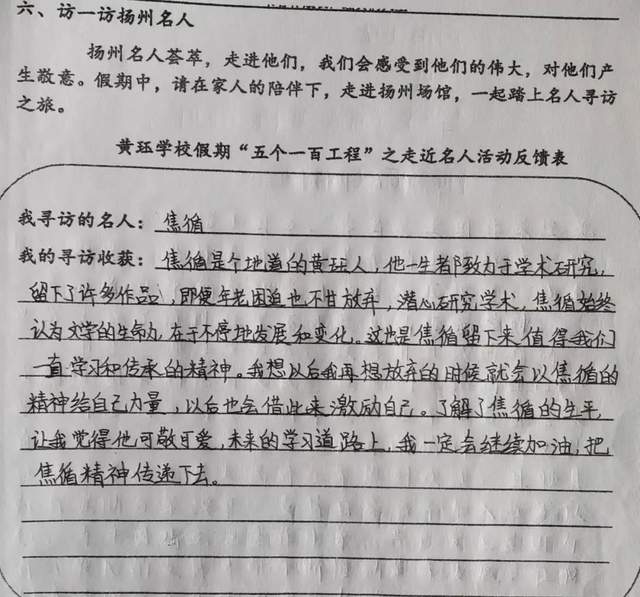 六、访一访扬州名人
扬州名人荟萃，走进他们，我们会感受到他们的伟大，对他们产
生敬意。假期中，请在家人的陪伴下，走进扬州场馆，一起踏上名人寻访
之旅。
黄珏学校假期“五个一百工程”之走近名人活动反馈表
我寻访的名人：焦循
我的寻访收获：焦循是个地道的黄珏人，他一生都致力于学术研究，
留下了许多作品，即便年老困迫也不甘放弃，潜心研究学术，焦循始终
认为文学的生命力，在于不停地发展和变化。这也是焦循留下来值得我们
一直学习和传承的精神。我想以后我再想放弃的时候就会以焦循的
精神给自己力量，以后也会借此来激励自己。了解了焦循的生平，
让我觉得他可敬可爱，未来的学习道路上，我一定会继续加油，把
焦循精神传递下去。